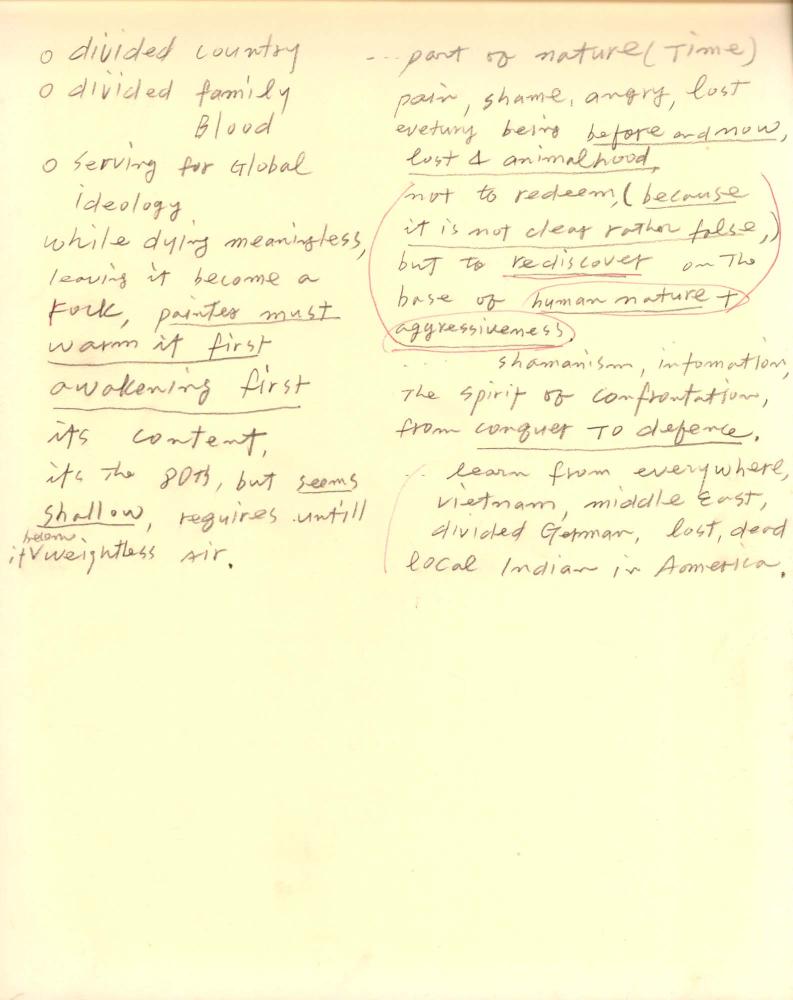 o divided country
o divided family
Blood
o serving for Global
ideology
while dying meaningless,
leaving it become a
Fock, painter must
warm it first
awakening first
its content,
its the 80th, but seems
shallow, requires untill
it become weightless air.
... part of nature (Time)
pain, shame, angry, lost
evetury being before and now,
lost 4 animalhood,
not to redeem, (because
it is not clear rather false,)
but to rediscover on The
base of human nature +
aggressiveness.
... shamanism, infomation,
The spirit of confrontation,
from conquer TO defence.
.. learn from everywhere,
Vietnam, middle East,
divided German, lost, dead
local Indian in Aomerica.